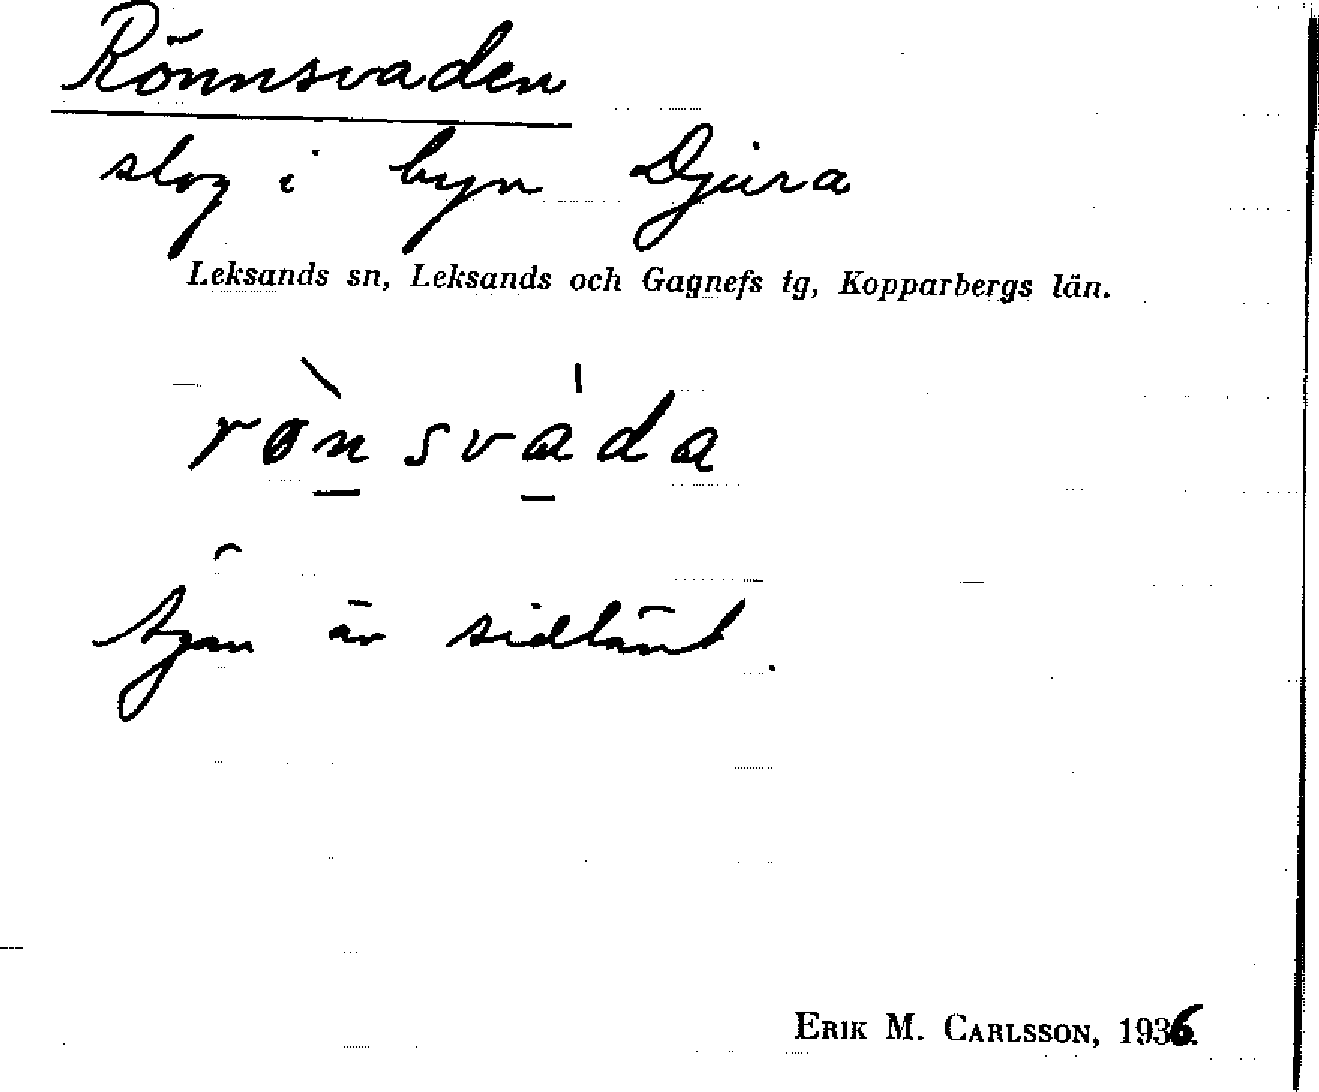 Rönnsvaden
slog i byn Djura
Leksands sn, Leksands och Gagnefs tg, Kopparbergs län.
rønsvada
Äjan är sidlänt.
ERIK M. CARLSSON, 1936.